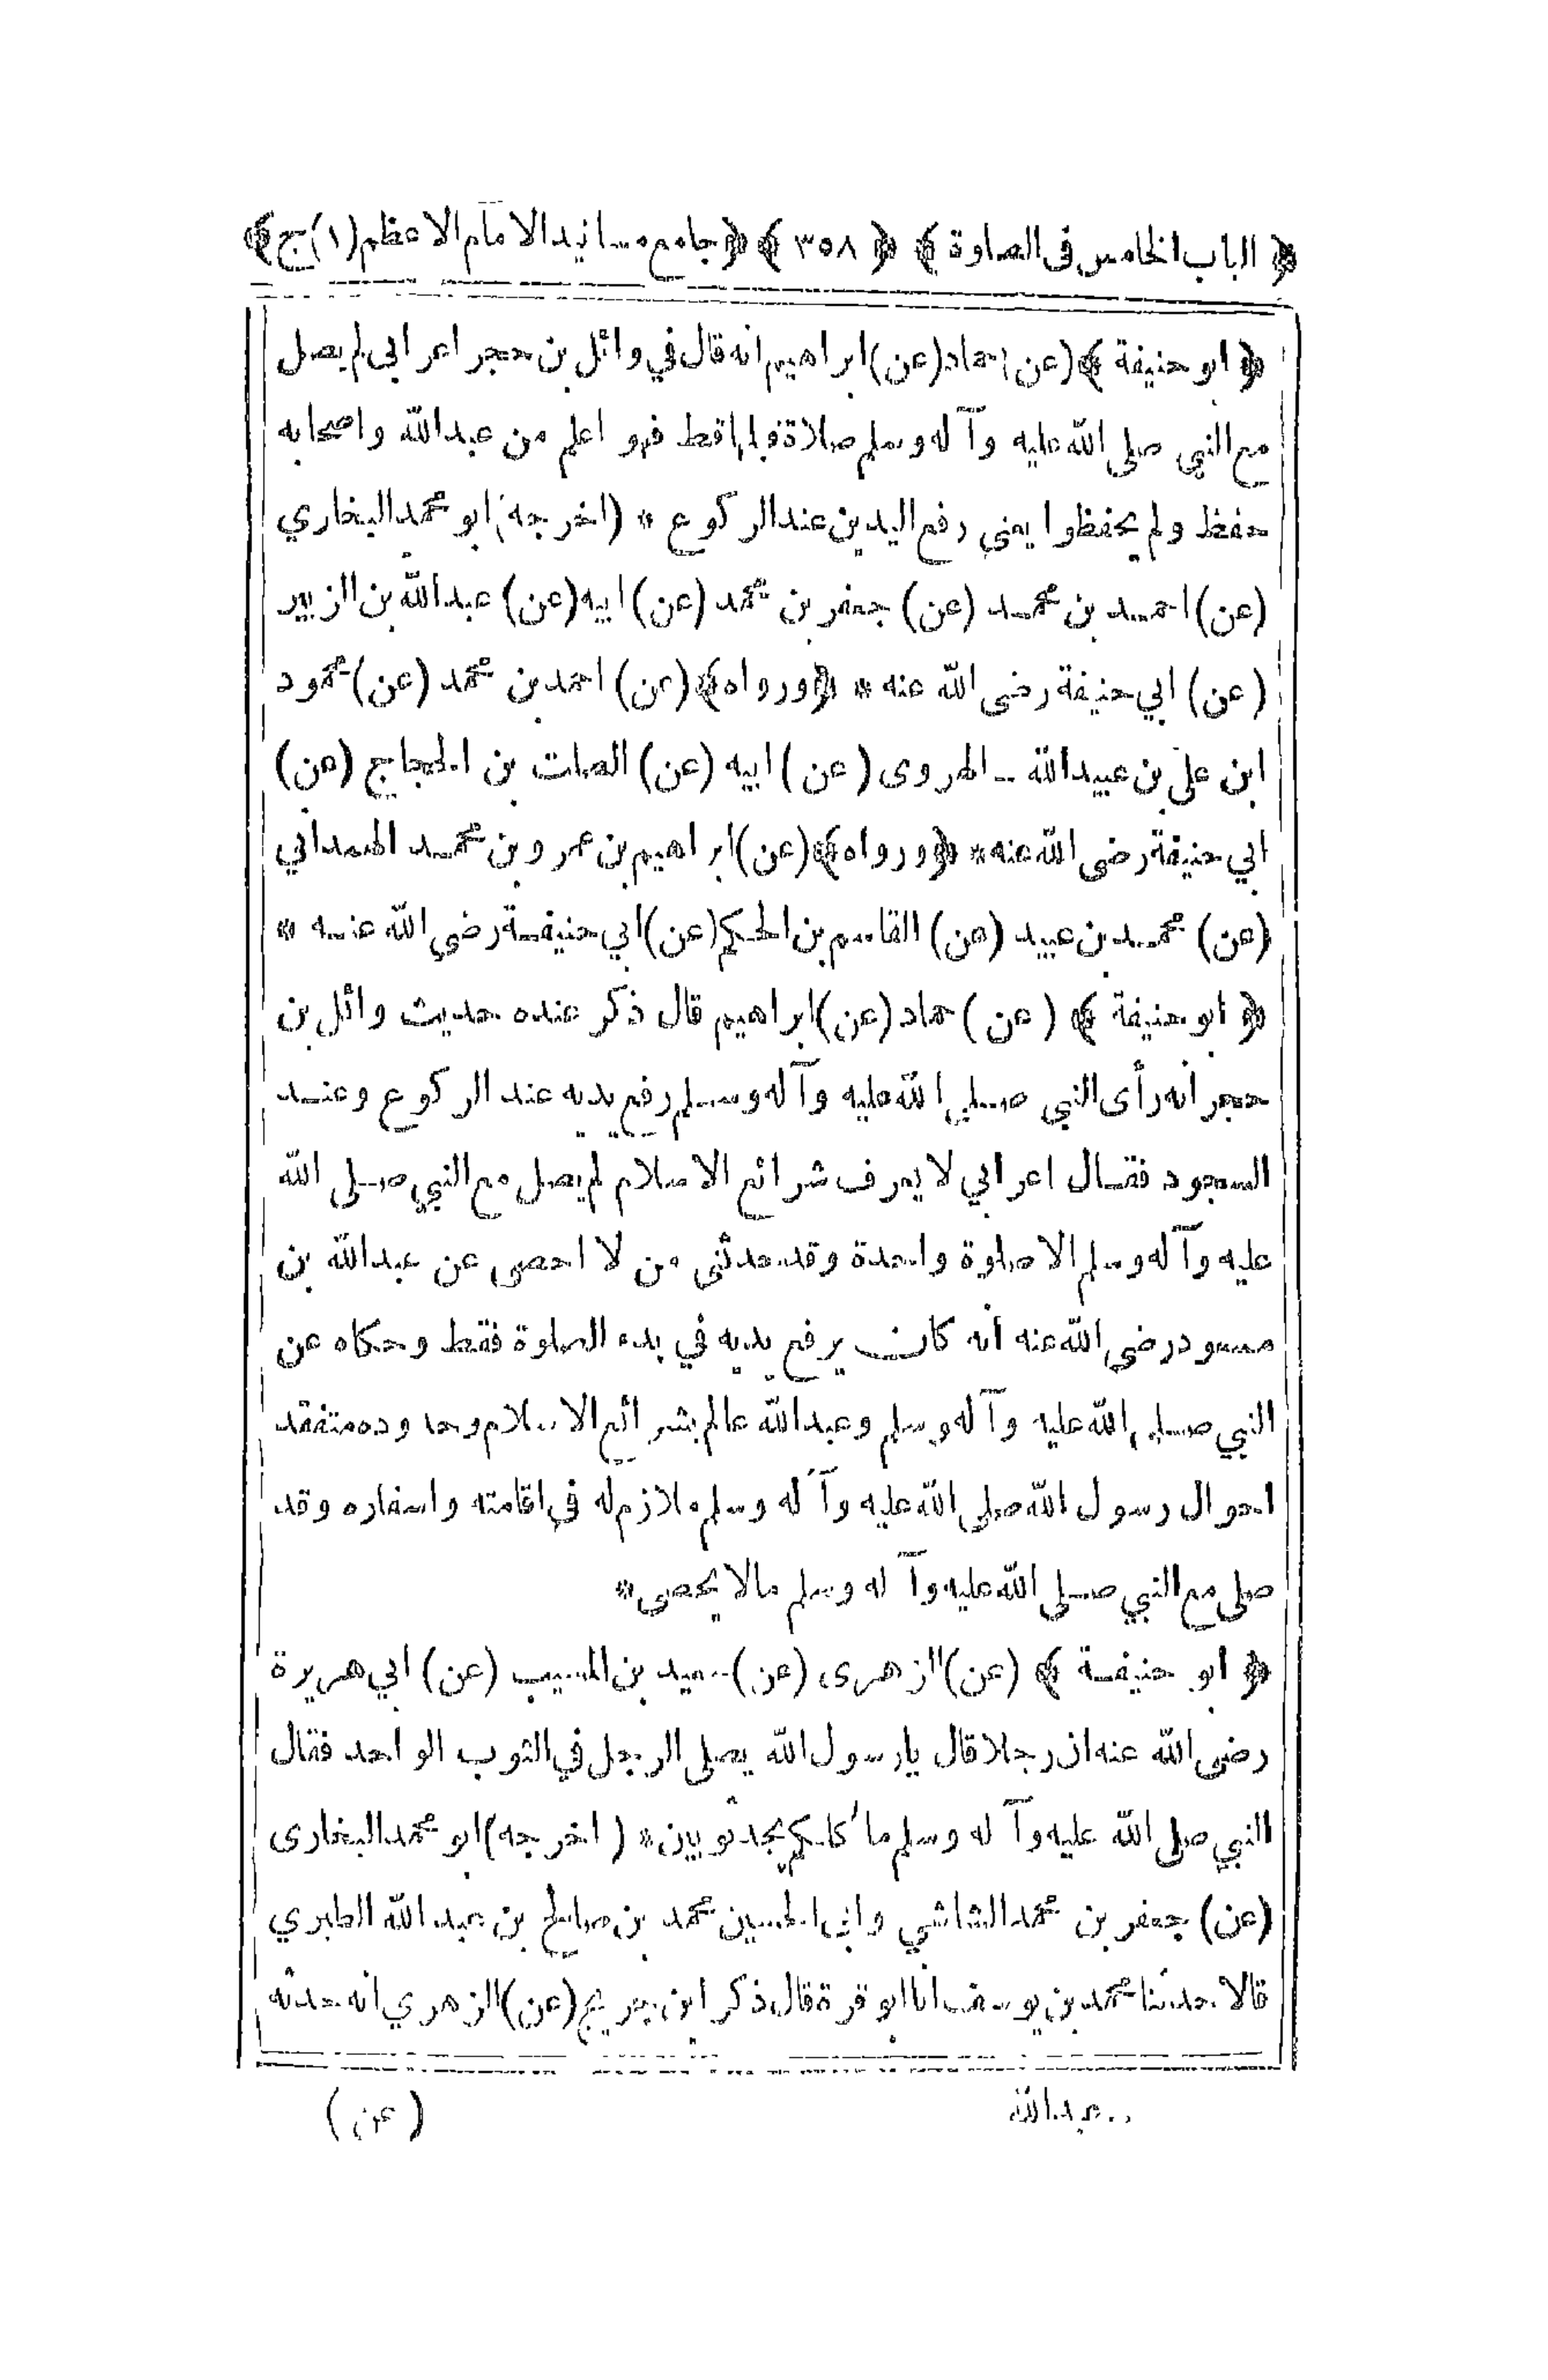 ﴿ الباب الخامس فى الصلوة ﴾ ﴿ ٣٥٨ ﴾ ﴿ جامع مسانيد الامام الاعظم (١) ج ﴾
﴿ ابو حنيفة ﴾ (عن) حماد (عن) ابراهيم انه قال في وائل بن حجر اعرابى لم يصل
مع النبي صلى الله عليه وآله وسلم صلاة قبلها قط فهو اعلم من عبدالله واصحابه
حفظ ولم يحفظوا يعنى رفع اليدين عند الركوع * (اخرجه) ابو محمد البخاري
(عن) احمد بن محمد (عن) جعفر بن محمد (عن) ابيه (عن) عبدالله بن الزبير
(عن) ابي حنيفة رضى الله عنه * ﴿ورواه﴾ (عن) احمد بن محمد (عن) محمود
ابن على بن عبيدالله الهروى (عن) ابيه (عن) الصلت بن الحجاج (عن)
ابي حنيفة رضى الله عنه * ﴿ورواه﴾ (عن) ابراهيم بن عمرو بن محمد الهمداني
(عن) محمد بن عبيد (عن) القاسم بن الحكم (عن) ابي حنيفة رضى الله عنه *
﴿ ابو حنيفة ﴾ (عن) حماد (عن) ابراهيم قال ذكر عنده حديث وائل بن
حجر انه رأى النبي صلى الله عليه وآله وسلم رفع يديه عند الركوع وعند
السجود فقال اعرابي لا يعرف شرائع الاسلام لم يصل مع النبي صلى الله
عليه وآله وسلم الا صلوة واحدة وقد حدثنى من لا احصى عن عبدالله بن
مسعود رضى الله عنه انه كان يرفع يديه في بدء الصلوة فقط وحكاه عن
النبي صلى الله عليه وآله وسلم وعبدالله عالم بشرائع الاسلام وحدوده متفقد
احوال رسول الله صلى الله عليه وآله وسلم ملازم له فى اقامته واسفاره وقد
صلى مع النبي صلى الله عليه وآله وسلم مالا يحصى *
﴿ ابو حنيفة ﴾ (عن) الزهرى (عن) سعيد بن المسيب (عن) ابي هريرة
رضى الله عنه ان رجلا قال يارسول الله يصلى الرجل في الثوب الواحد فقال
النبي صلى الله عليه وآله وسلم ما كلكم يجد ثوبين * (اخرجه) ابو محمد البخارى
(عن) جعفر بن محمد الشاشي وابى الحسين محمد بن صالح بن عبدالله الطبري
قالا حدثنا محمد بن يوسف انا ابو قرة قال ذكر ابن جريج (عن) الزهري انه حدثه
عبدالله (عن)